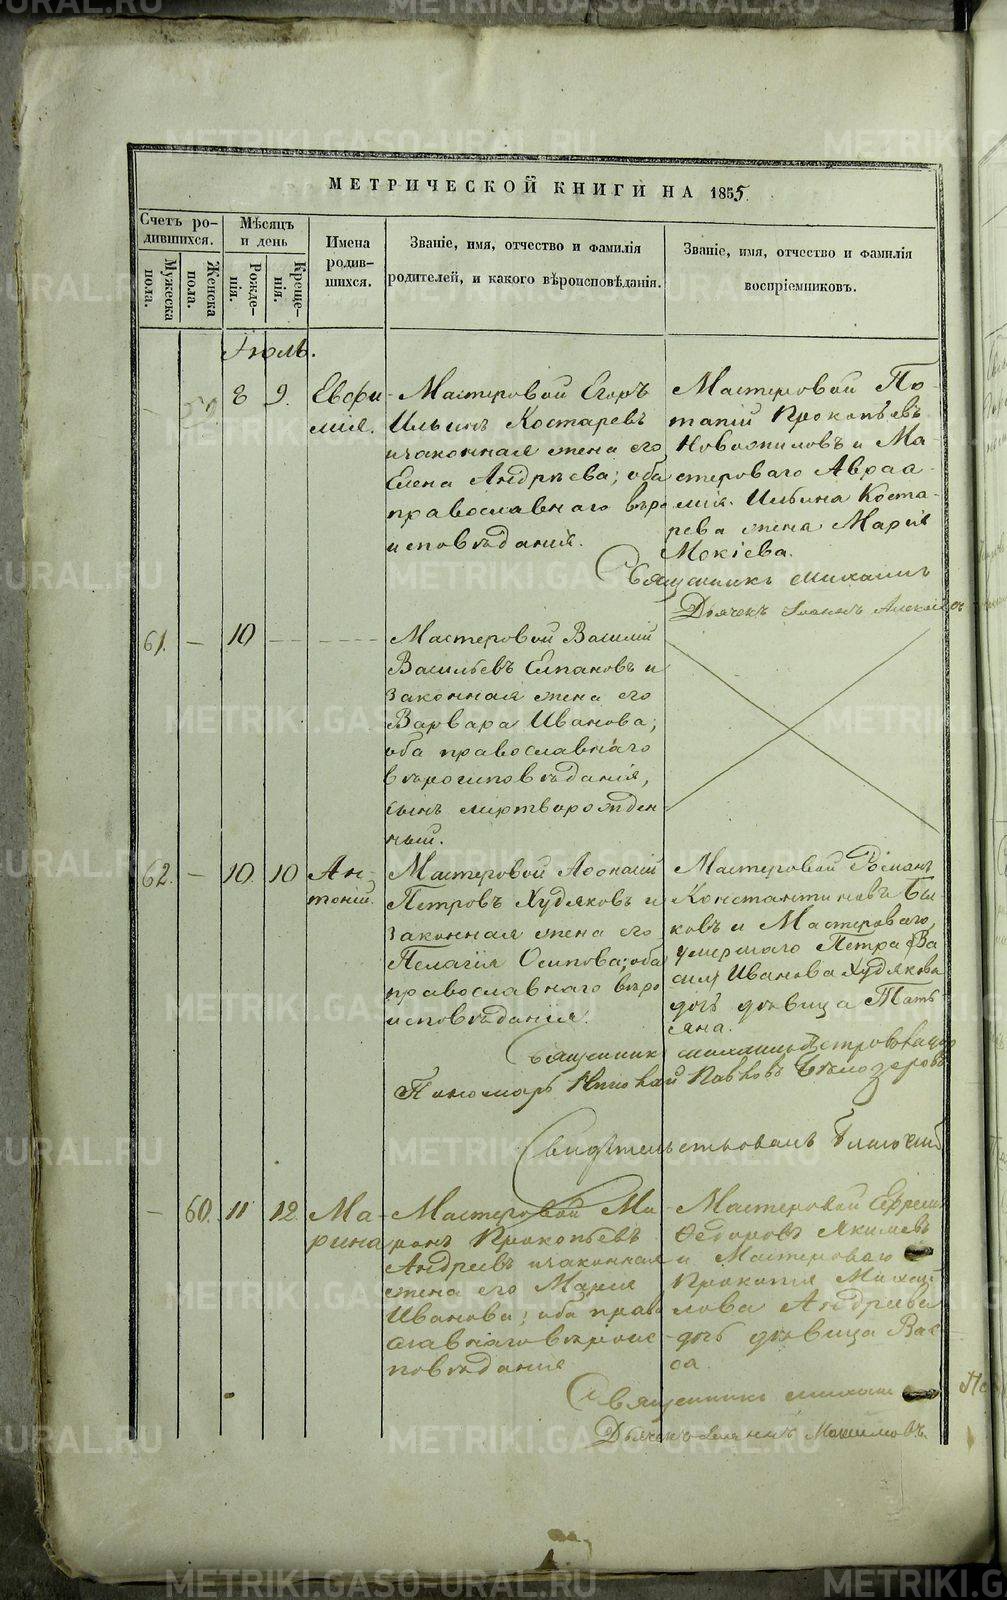 МЕТРИЧЕСКОЙ КНИГИ НА 1855.
Счетъ ро-
дившихся.
Мужеска
пола.
Женска
пола.
Мѣсяцъ
и день
Рожде-
нія.
Креще-
нія.
Имена
родив-
шихся.
Званіе, имя, отчество и фамилія
родителей, и какого вѣроисповѣданія.
Званіе, имя, отчество и фамилія
воспріемниковъ.
Іюль.
— 59 8 9.
Евфи-
мія.
Мастеровой Егоръ
Ильинъ Костаревъ
и законная жена его
Елена Андрѣева; оба
православнаго вѣро
исповѣданія.
Мастеровой По-
тапій Прокопьевъ
Новожиловъ и Ма-
стероваго Авраа-
мія Ильина Коста-
рева жена Марія
Мокіева.
Священникъ Михаилъ
Дьячекъ
61. — 10 — —
Мастеровой Василій
Васильевъ Елпановъ и
законная жена его
Варвара Иванова;
оба православнаго
вѣроисповѣданія,
сынъ мертворожден
ный.
62. — 10. 10
Ан-
тоній.
Мастеровой Афонасій
Петровъ Худяковъ и
законная жена его
Пелагія Осипова; оба
православнаго вѣро
исповѣданія.
Мастеровой Романъ
Константиновъ Бы-
ковъ и Мастероваго,
умершаго Петра Ва
сил Иванова Худякова
дочь дѣвица Тать
яна.
Священникъ Михаилъ
Пономарь Николай Бѣлозеровъ
Свидѣтельствовалъ Благочин
— 60. 11 12
Ма-
рина
Мастеровой Ми-
ронъ Прокопьевъ
Андреевъ и законная
жена его Марія
Иванова; оба право
славнаго вѣроис
повѣданія
Мастеровой Ефремъ
Федоровъ Якимовъ
и Мастероваго
Прокопія Михай
лова Андреева
дочь дѣвица Вас-
са.
Священникъ Михаил
Дьячекъ
METRIKI.GASO-URAL.RU